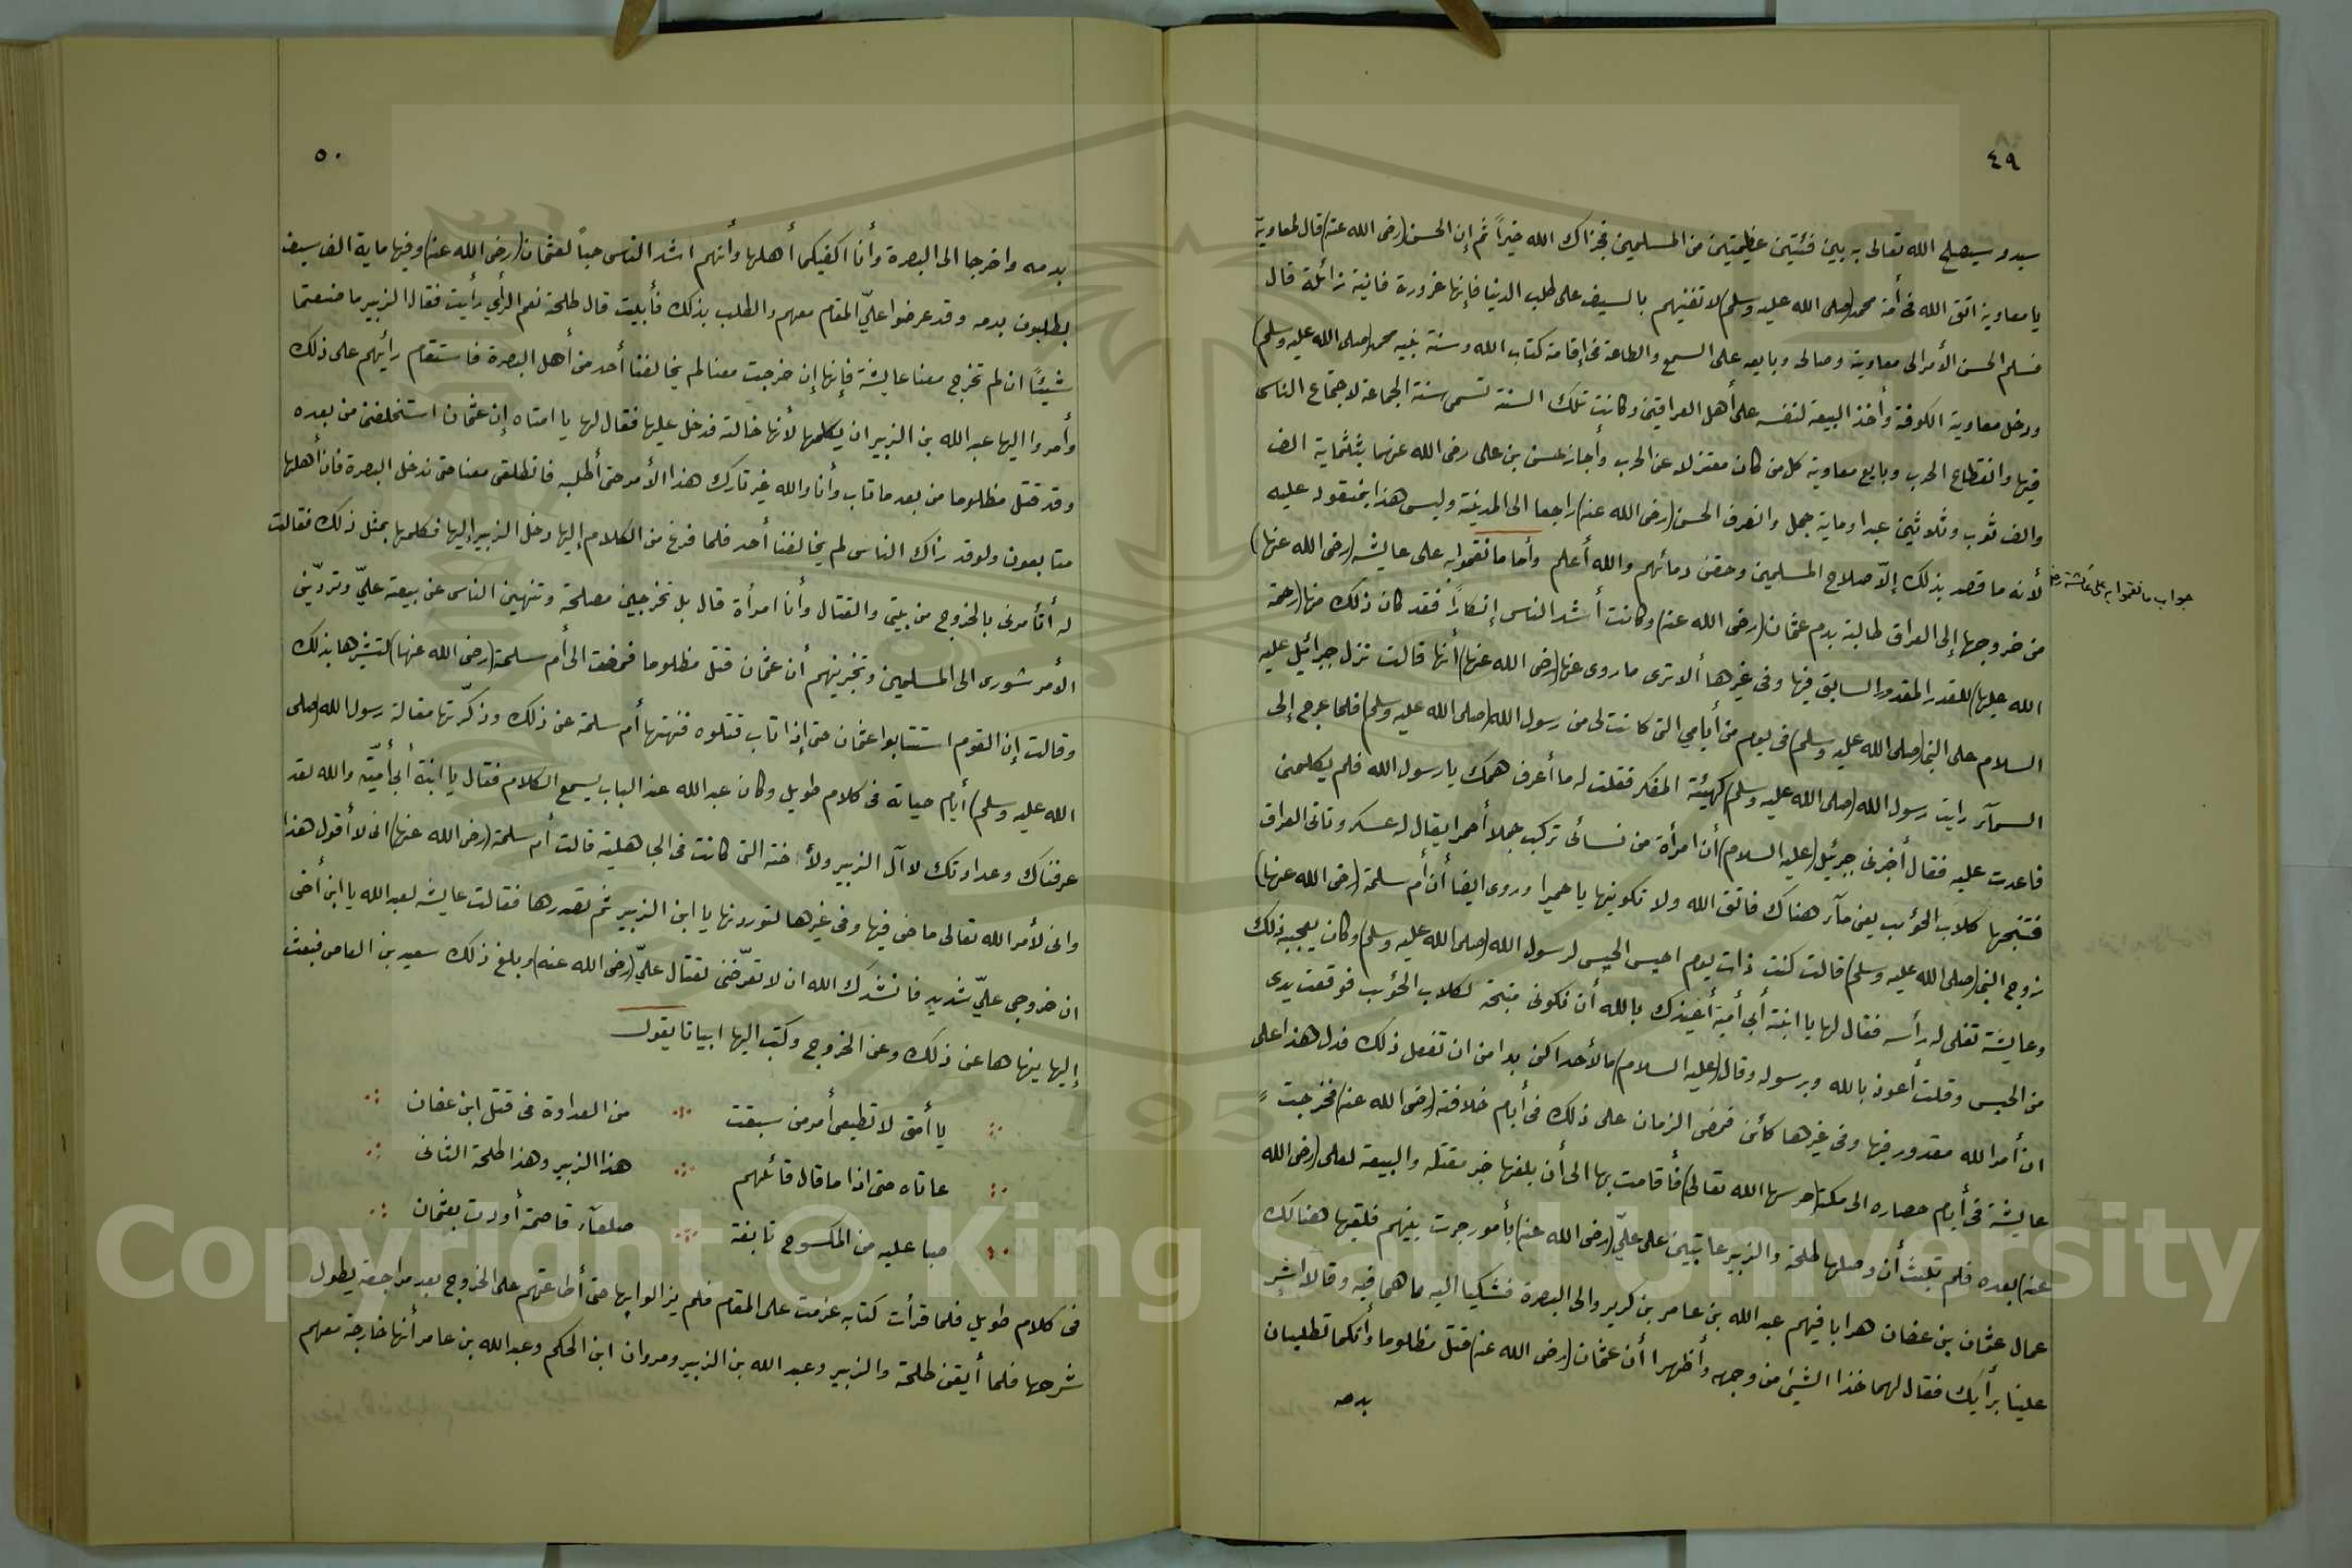 ٤٩
سيد وسيصلح الله تعالى به بين فئتين عظيمتين من المسلمين فجزاك الله خيراً ثم إن الحسن (رضى الله عنه) قال لمعاوية
يا معاوية اتق الله فى أمة محمد (صلى الله عليه وسلم) لا تفنيهم بالسيف على طلب الدنيا فإنها غرورة فانية زائلة قال
فسلم الحسن الأمر الى معاوية وصالحه وبايعه على السمع والطاعة فى إقامة كتاب الله وسنة نبيه محمد (صلى الله عليه وسلم)
ودخل معاوية الكوفة وأخذ البيعة لنفسه على أهل العراقين وكانت تلك السنة تسمى سنة الجماعة لاجتماع الناس
فيها وانقطاع الحرب وبايع معاوية كل من كان معتزلا عن الحرب وأجاز حسن بن على رضى الله عنهما بثلثماية الف
والف ثوب وثلاثين عبدا وماية جمل وانصرف الحسن (رضى الله عنه) راجعا الى المدينة وليس هذا بمنقود عليه
لأنه ما قصد بذلك إلّا صلاح المسلمين وحقن دمائهم والله أعلم وأما ما نقموا به على عايشه (رضى الله عنها)
جواب ما نقموا به على عائشة رضـ
من خروجها إلى العراق طالبة بدم عثمان (رضى الله عنه) وكانت أشد الناس إنكاراً فقد كان ذلك منها (رحمة
الله عليها) للقدر المقدور السابق فيها وفى غيرها ألا ترى ما روى عنها (رضى الله عنها) أنها قالت نزل جبرائيل عليه
السلام على النبى (صلى الله عليه وسلم) فى يوم من أيامي التى كانت لى من رسول الله (صلى الله عليه وسلم) فلما عرج إلى
السمآء رايت رسول الله (صلى الله عليه وسلم) كهيئة المفكر فقلت له ما أعرف همك يا رسول الله فلم يكلمنى
فاعدت عليه فقال أخبرنى جبرئيل (عليه السلام) أن امرأة من نسائى تركب جملا أحمرا يقال له عسكر وتاتى العراق
فتنبحها كلاب الحؤب يعنى مآء هناك فاتق الله ولا تكونيها يا حميرا وروى ايضا أن أم سلمة (رضى الله عنها)
زوج النبى (صلى الله عليه وسلم) قالت كنت ذات يوم احيس الحيس لرسول الله (صلى الله عليه وسلم) وكان يعجبه ذلك
وعايشة تفلى له رأسه فقال لها يا ابنة أبى أمية أعيذك بالله أن تكونى منبحة لكلاب الحؤب فوقعت يدى
من الحيس وقلت أعوذ بالله وبرسوله وقال (عليه السلام) ما لأحداكن بد امن ان تفعل ذلك فدل هذا على
ان أمر الله مقدور فيها وفى غيرها كأئن فمضى الزمان على ذلك فى أيام خلافته (رضى الله عنه) فخرجت
عايشة فى أيام حصاره الى مكة (حرسها الله تعالى) فأقامت بها الى أن بلغها خبر مقتله والبيعة لعلى (رضى الله
عنه) بعده فلم تلبث أن وصلها طلحة والزبير عاتبين على علىّ (رضى الله عنه) بأمور جرت بينهم فلقيها هنالك
عمال عثمان بن عفان هرابا فيهم عبد الله بن عامر بن كريز والى البصرة فشكيا اليه ما هما فيه وقالا اشر
علينا برأيك فقال لهما خذا الشيئ من وجهه وأظهرا أن عثمان (رضى الله عنه) قتل مظلوما وأنكما تطلبان
بدمه
٥٠
بدمه واخرجا الى البصرة وأنا اكفيكم أهلها وأنهم اشد الناس حباً لعثمان (رضى الله عنه) وفيها ماية الف سيف
يطلبون بدمه وقد عرضوا علىّ المقام معهم والطلب بذلك فأبيت قال طلحة نعم الرأي رأيت فقال الزبير ما صنعتما
شيئاً ان لم تخرج معنا عايشة فإنها إن خرجت معنا لم يخالفنا أحد من أهل البصرة فاستقام رأيهم على ذلك
وأمروا اليها عبد الله بن الزبير ان يكلمها لأنها خالته فدخل عليها فقال لها يا امتاه إن عثمان استخلفنى من بعده
وقد قتل مظلوما من بعد ما تاب وأنا والله غير تارك هذا الأمر حتى أطلبه فانطلقى معنا حتى ندخل البصرة فان أهلها
متابعون ولو قد رأك الناس لم يخالفنا أحد فلما فرغ من الكلام إليها دخل الزبير إليها فكلمها بمثل ذلك فقالت
له أتأمرنى بالخروج من بيتى والقتال وأنا امرأة قال بل تخرجين مصلحة وتنهين الناس عن بيعة علىّ وتردّين
الأمر شورى الى المسلمين وتخبرينهم أن عثمان قتل مظلوما فمضت الى أم سلمة (رضى الله عنها) لتشيرها بذلك
وقالت إن القوم استتابوا عثمان حتى إذا تاب قتلوه فنهتها أم سلمة عن ذلك وذكّرتها مقالة رسول الله (صلى
الله عليه وسلم) أيام حياته فى كلام طويل وكان عبد الله عند الباب يسمع الكلام فقال يا ابنة أبى أميّة والله لقد
عرفناك وعداوتك لآل الزبير ولأ خنه التى كانت فى الجاهلية قالت أم سلمة (رضى الله عنها) انى لا أقول هذا
وانى لأمر الله تعالى ماضى فيها وفى غيرها لتوردنها يا ابن الزبير ثم تصدرها فقالت عايشه لعبد الله يا ابن أخى
ان خروجى علىّ شديد فانشدك الله ان لا تعرّضنى لقتال علىّ (رضى الله عنه) وبلغ ذلك سعيد بن العاص فبعث
إليها ينهاها عن ذلك وعن الخروج وكتب اليها ابياتا يقول
يا أمتى لا تطيعى أمر من سبقت من العداوة فى قتل ابن عفان
عاتاه حتى اذا ما قال قائلهم هذا الزبير وهذا طلحة الثانى
صبا عليه من المكسوح تابقة صلعآء قاصمة أودت بعثمان
فى كلام طويل فلما قرأت كتابه عزمت على المقام فلم يزالوا بها حتى أطاعتهم على الخروج بعد مراجعة يطول
شرحها فلما أيقن طلحة والزبير وعبد الله بن الزبير ومروان ابن الحكم وعبد الله بن عامر أنها خارجة معهم
Copyright © King Saud University